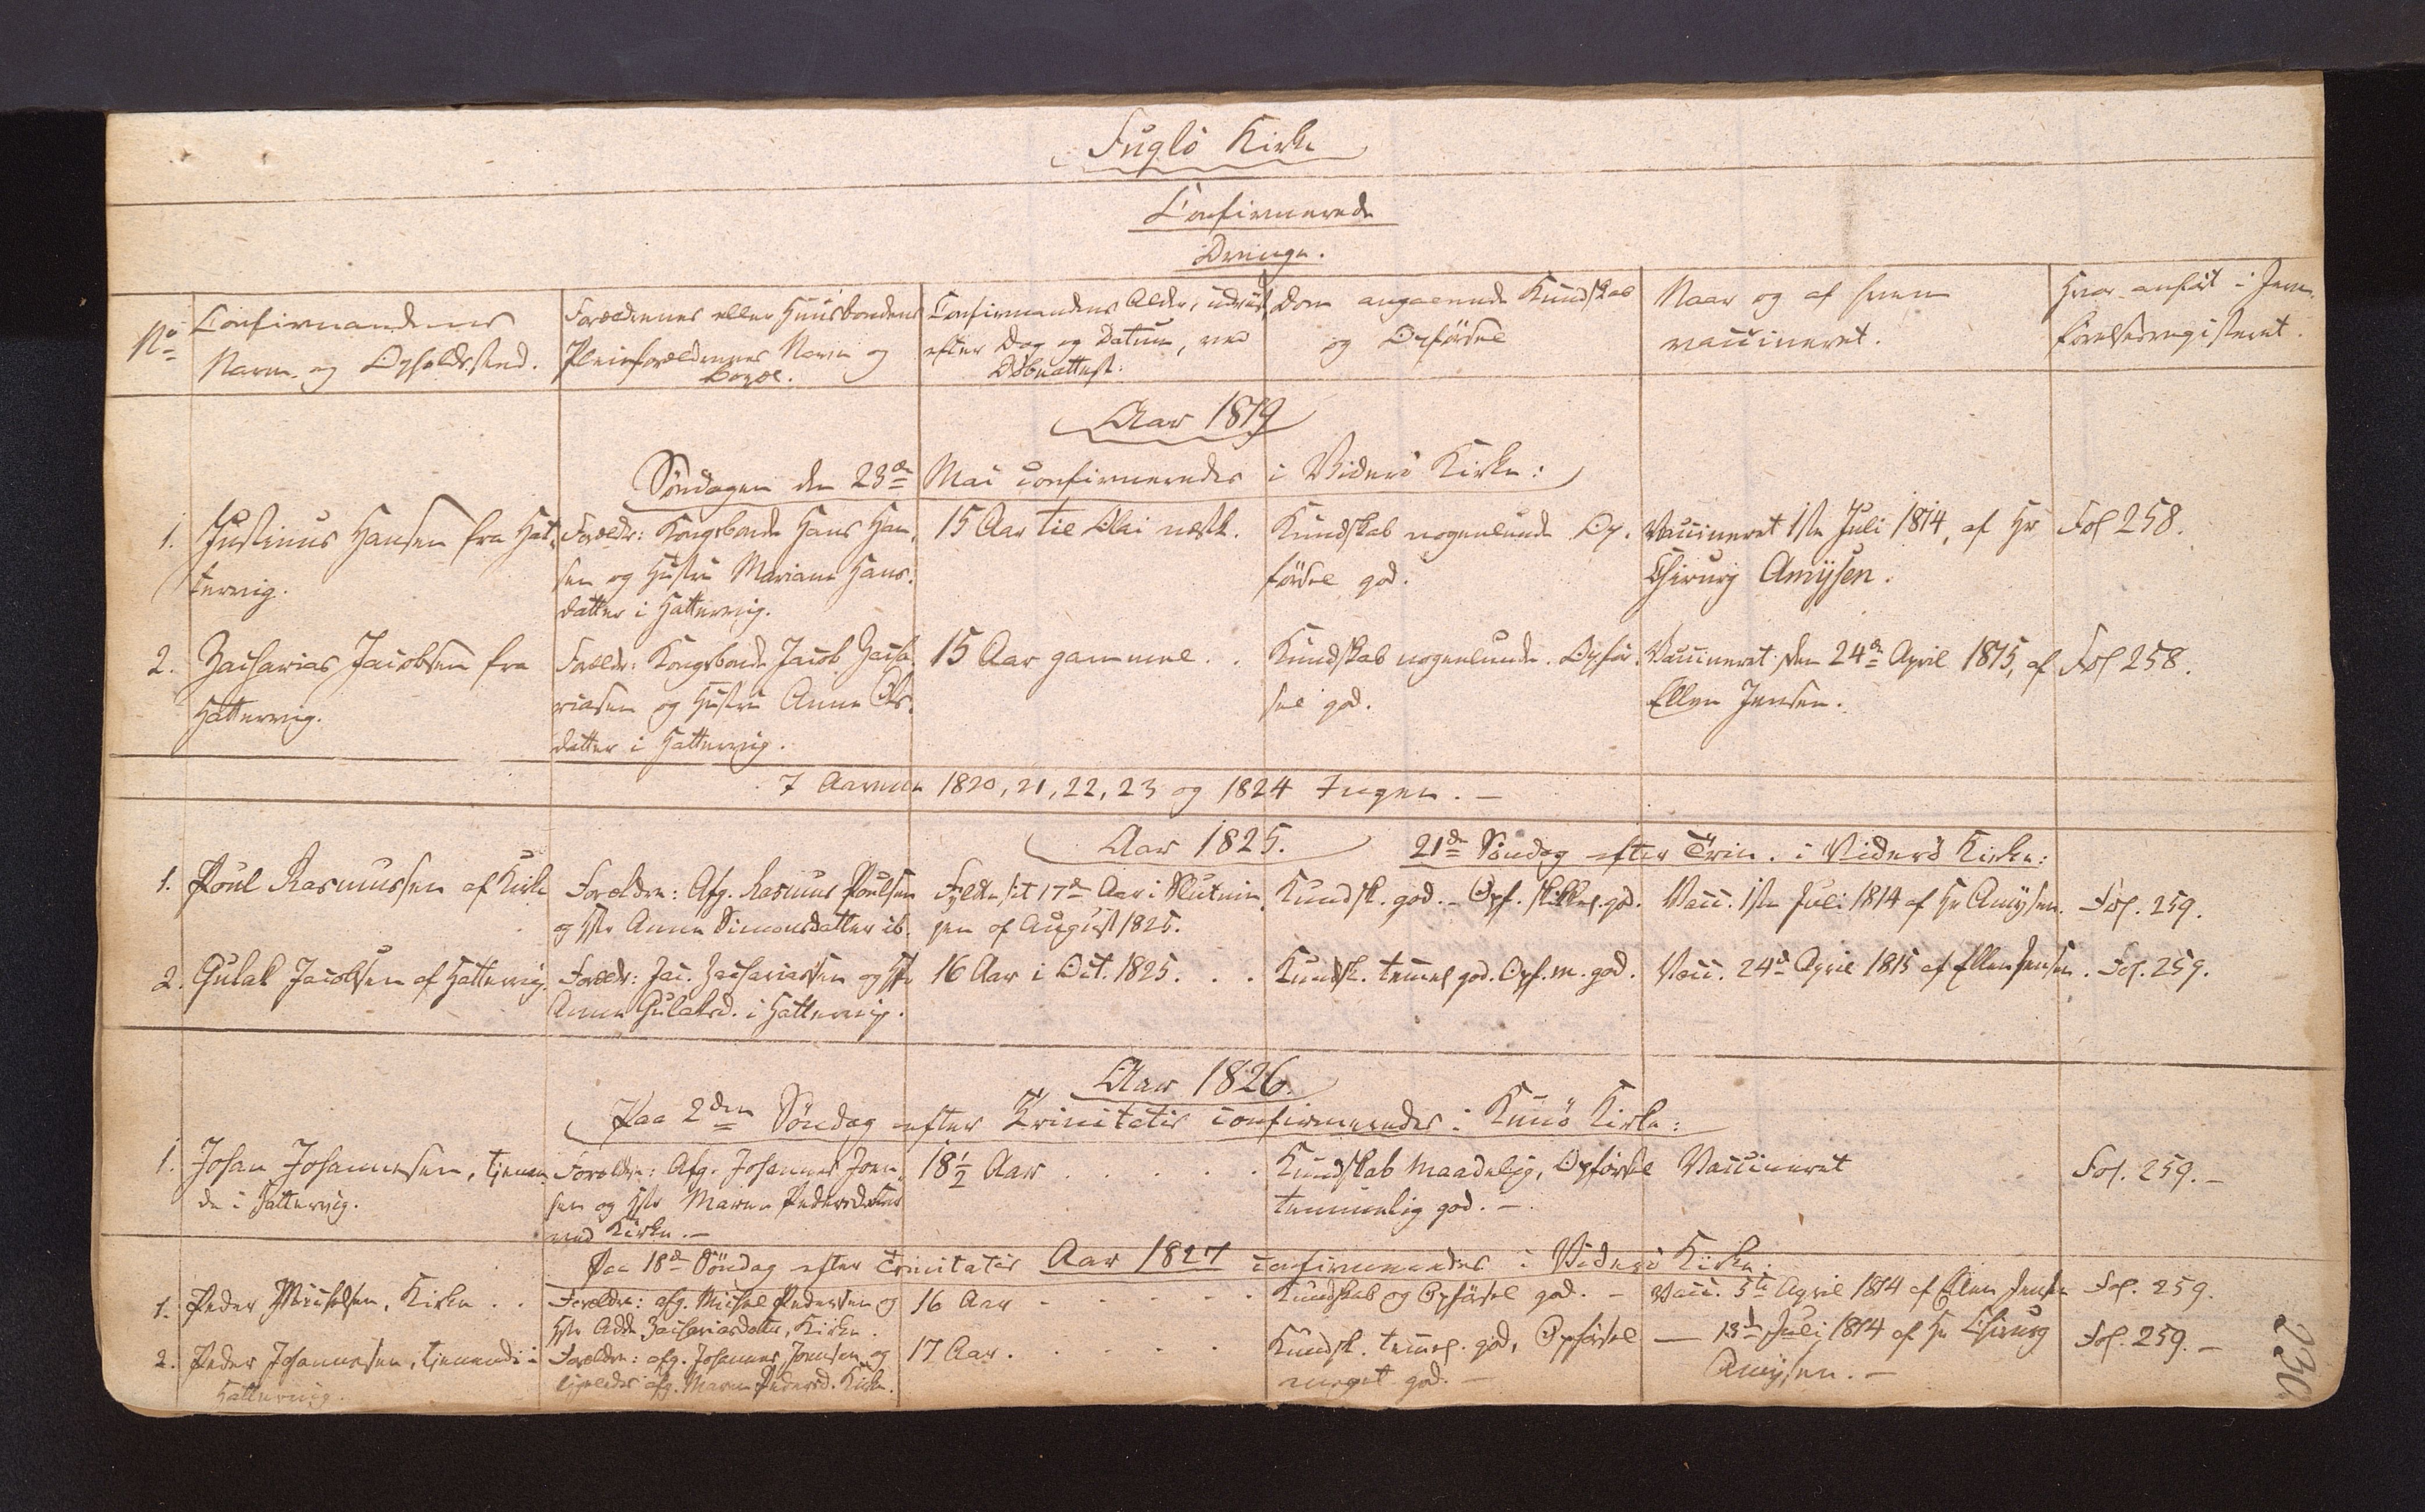 Fuglö Kirke
Confirmerede
Drenge.
No
Confirmandernes
Navn og Opholdssted.
Forældrenes eller Huusbondens
Pleieforældrenes Navn og
Bopæl.
Confirmandens Alder, udviist
efter Dag og Datum, ved
Döbeattest:
Dom angaaende Kundskab
og Opförsel
Naar og af hvem
vaccineret.
Hvor anfört i Jevn-
förelsesregisteret.
Aar 1819
Söndagen den 23de Mai confirmeredes i Viderö Kirke:
1. Justinus Hansen fra Hat-
tervig.
Forældr: Kongsbonde Hans Han-
sen og Hustru Mariane Hans-
datter i Hattervig.
15 Aar til Olai næstk.
Kundskab nogenlunde Op-
försel god.
Vaccineret 1ste Juli 1814, af Hr
Chirurg Amysen.
Fol 258.
2. Zacharias Jacobsen fra
Hattervig.
Forældr: Kongsbonde Jacob Zacha-
riasen og Hustru Anne Ols-
datter i Hattervig.
15 Aar gammel . .
Kundskab nogenlunde. Opför-
sel god.
Vaccineret den 24de April 1815, af
Ellen Jensen.
Fol 258.
I Aarene 1820, 21, 22, 23 og 1824 Ingen. —
Aar 1825. 21de Söndag efter Trin. i Viderö Kirke:
1. Poul Rasmussen af Kirke
Forældre: Afg. Rasmus Poulsen
og Hstr Anne Simonsdatter ib.
Fyldte sit 17de Aar i Slutnin-
gen af August 1825.
Kundsk. god. - Opf. skikkel. god.
Vacc. 1ste Juli 1814 af Hr Amysen.
Fol. 259.
2. Gulak Jacobsen af Hattervig.
Forældr: Jac. Zachariassen og Hstr
Anne Gulaksd. i Hattervig.
16 Aar i Oct. 1825. . .
Kundsk. temmel god. Opf. m. god.
Vacc. 24de April 1815 af Ellen Jensen.
Fol. 259.
Aar 1826.
Paa 2den Söndag efter Trinitatis confirmeredes i Kunö Kirke:
1. Johan Johannesen, tjenen-
de i Hattervig.
Forældre: Afg. Johannes Joen-
sen og Hstr Maren Pedersdatter
ved Kirke. —
18½ Aar . . . .
Kundskab maadelig, Opförsel
temmelig god. —
Vaccineret
Fol. 259. —
Paa 18de Söndag efter Trinitatis Aar 1827 confirmeredes i Viderö Kirke:
1. Peder Michelsen, Kirke . .
Forældre: afg. Michel Pedersen og
Hstr Adde Zachariasdatter, Kirke.
16 Aar . . . . .
Kundskab og Opförsel god. —
Vacc. 5te April 1814 af Ellen Jensen
Fol. 259.
2. Peder Johannesen, tjenende i
Hattervig.
Forældre: afg. Johannes Joensen og
ligeledes afg. Maren Pedersd. Kirke.
17 Aar. . . . .
Kundsk. temmel. god, Opförsel
meget god. —
— 13de Juli 1814 af Hr Chirurg
Amysen. —
Fol. 259. —
230